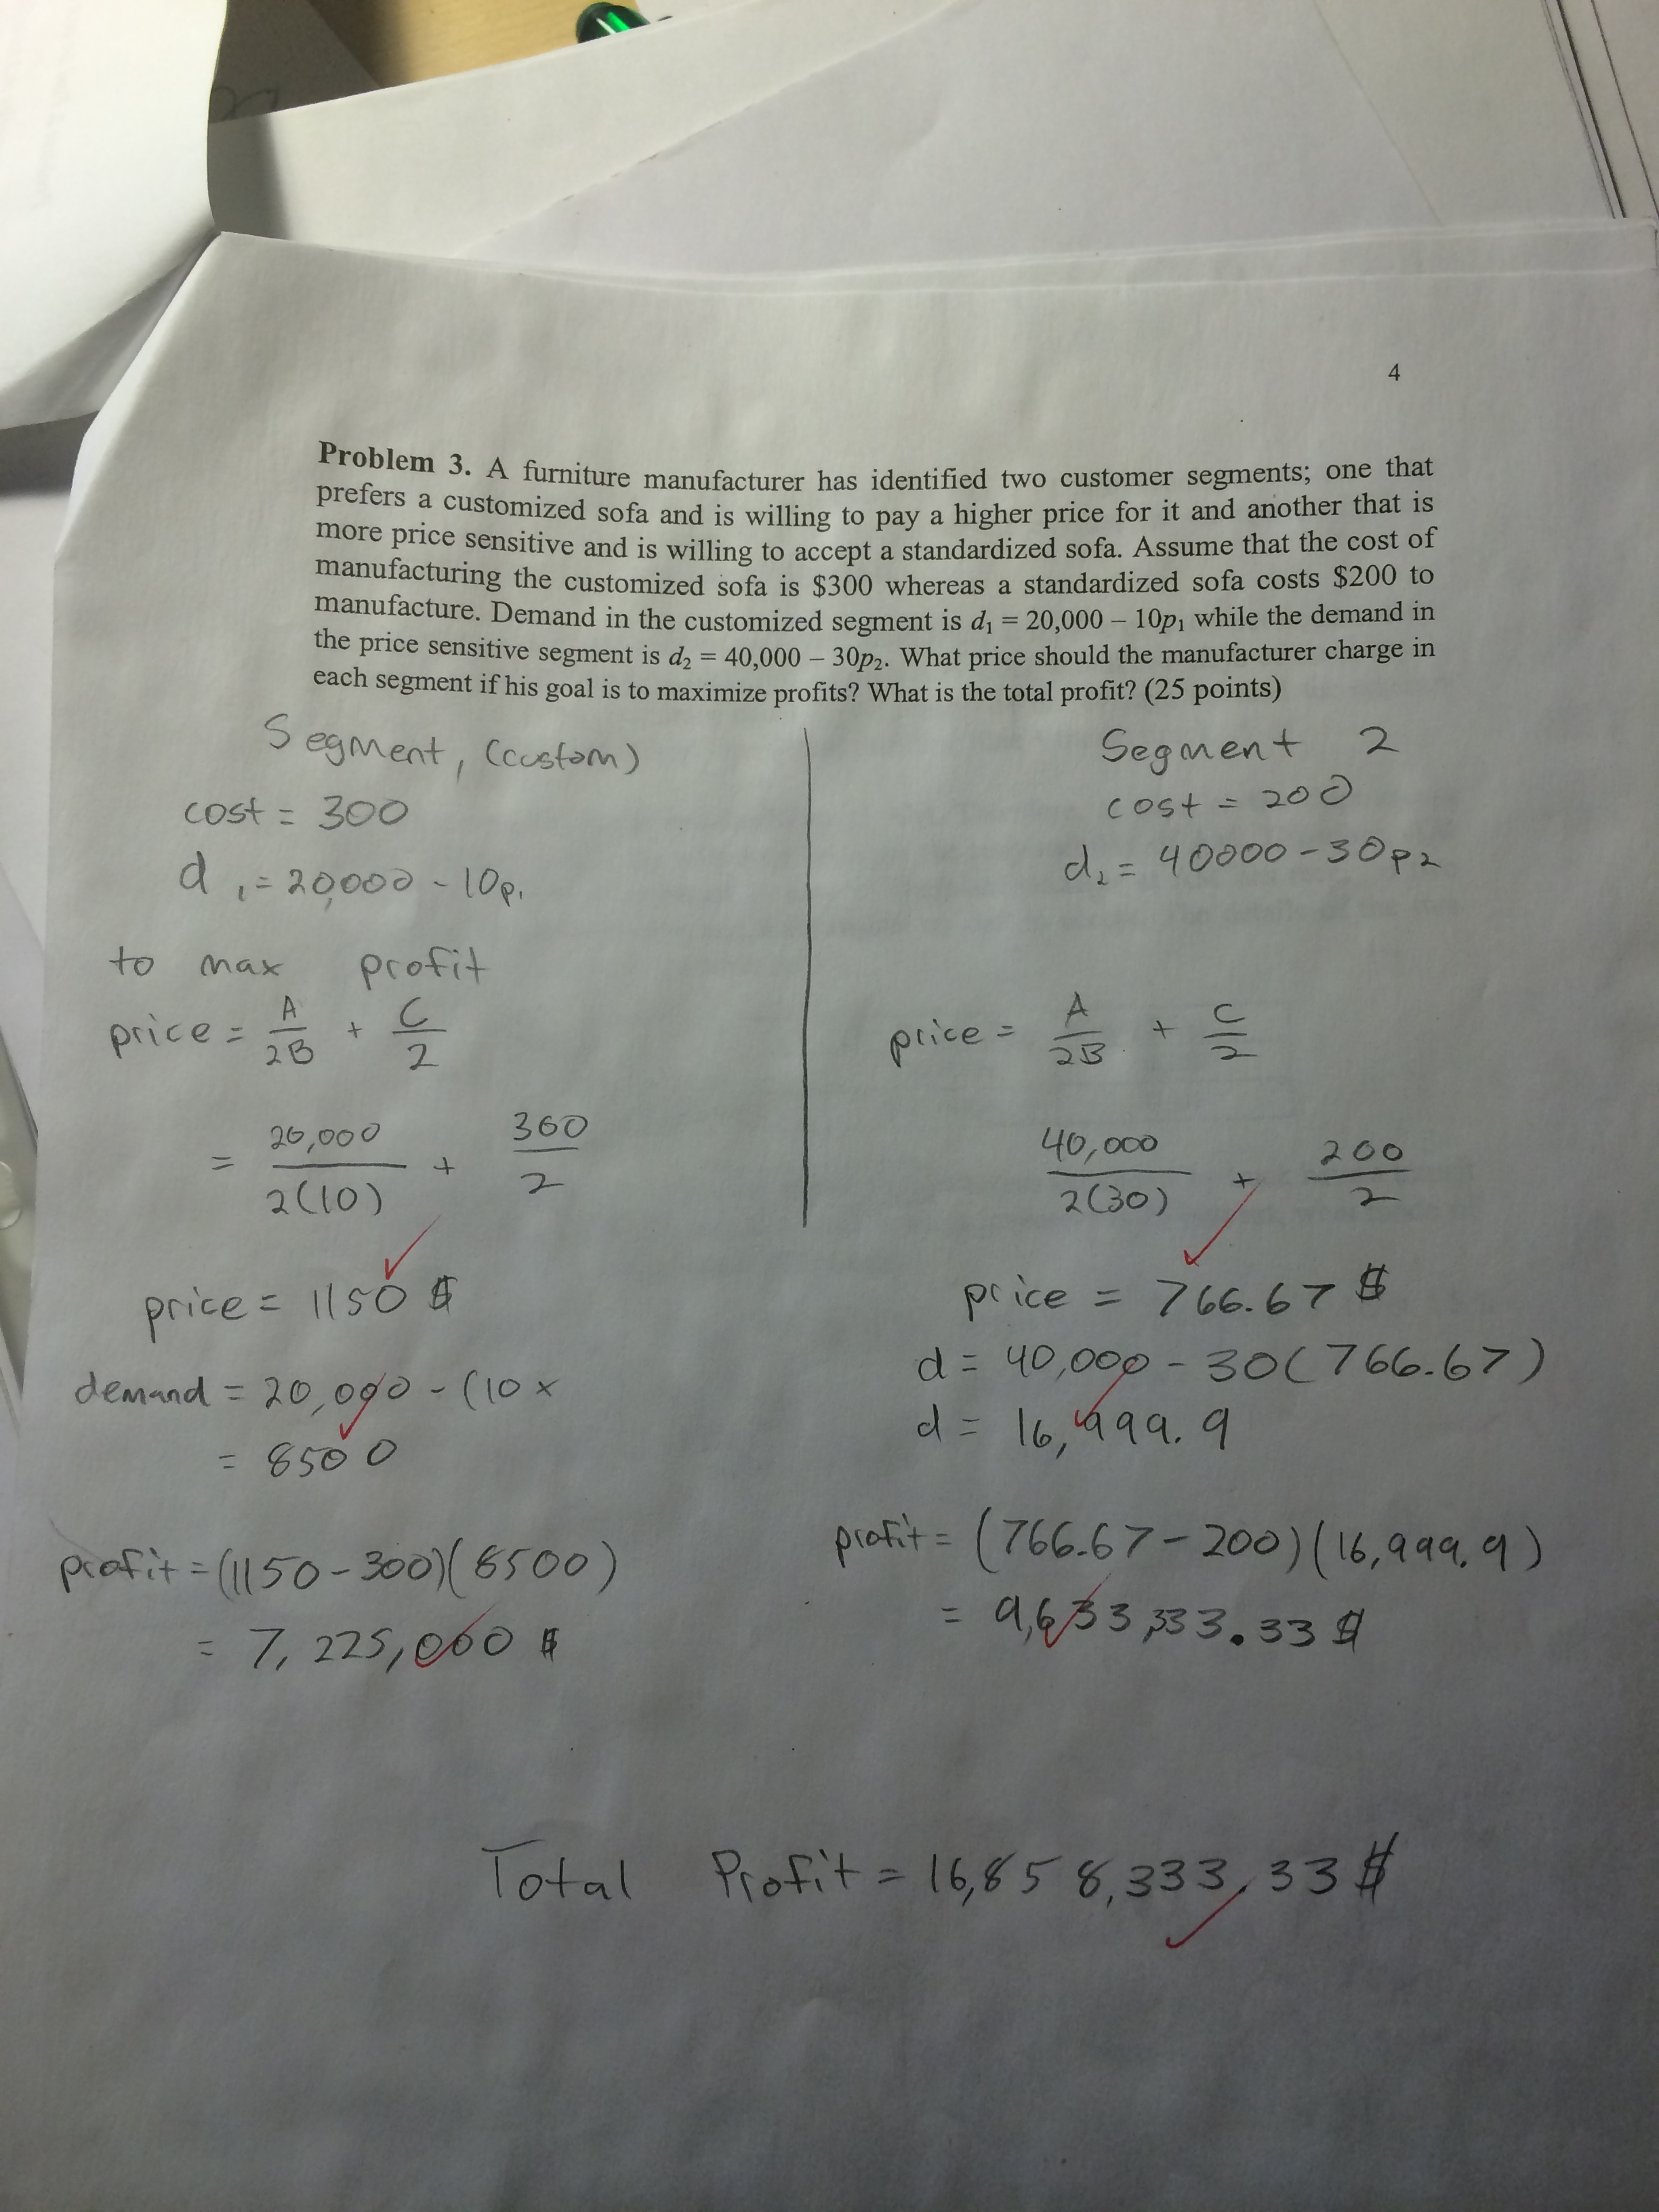 4
Problem 3. A furniture manufacturer has identified two customer segments; one that
prefers a customized sofa and is willing to pay a higher price for it and another that is
more price sensitive and is willing to accept a standardized sofa. Assume that the cost of
manufacturing the customized sofa is $300 whereas a standardized sofa costs $200 to
manufacture. Demand in the customized segment is d₁ = 20,000 – 10p₁ while the demand in
the price sensitive segment is d₂ = 40,000 – 30p₂. What price should the manufacturer charge in
each segment if his goal is to maximize profits? What is the total profit? (25 points)
Segment₁ (custom)
cost = 300
d₁ = 20,000 - 10p₁
to max profit
price = A/2B + C/2
= 20,000/2(10) + 300/2
price = 1150 $
demand = 20,000 - (10 x
= 8500
profit = (1150 - 300)(8500)
= 7,225,000 $
Segment 2
cost = 200
d₂ = 40000 - 30p₂
price = A/2B + C/2
40,000/2(30) + 200/2
price = 766.67 $
d = 40,000 - 30(766.67)
d = 16,999.9
profit = (766.67 - 200)(16,999.9)
= 9,633,333.33 $
Total Profit = 16,858,333.33 $